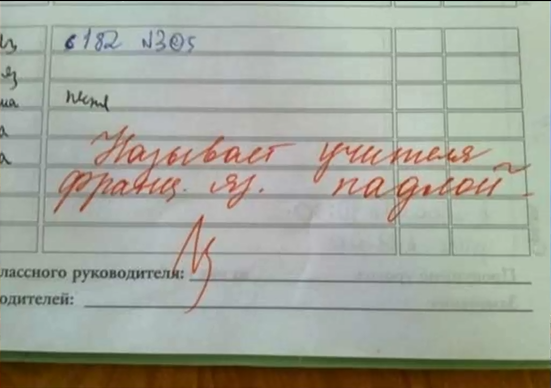 с 182 №305
яз
ма
а
а
Называет учителя
франц. яз. падлой
лассного руководителя:
одителей: